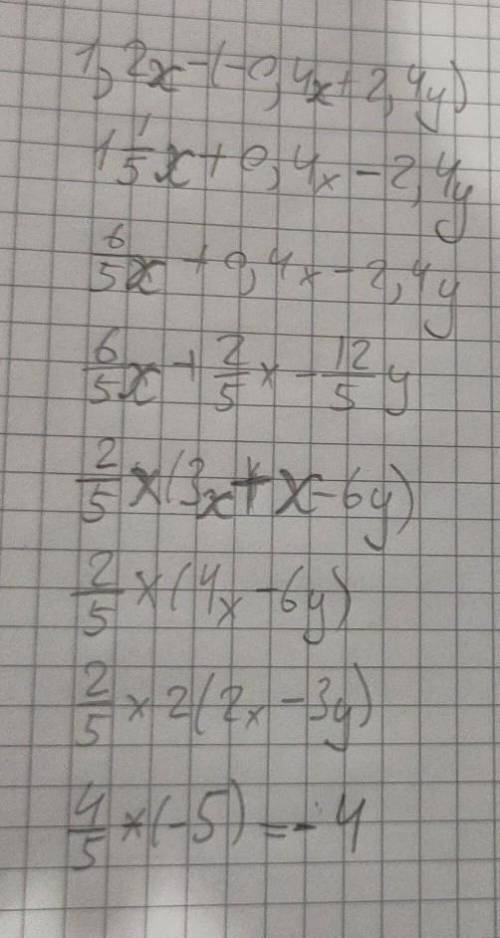 1,2x-(-0,4x+2,4y)
1 1/5 x+0,4x-2,4y
6/5 x+0,4x-2,4y
6/5 x+2/5 x-12/5 y
2/5 ×(3x+x-6y)
2/5 ×(4x-6y)
2/5 ×2(2x-3y)
4/5 ×(-5)=-4